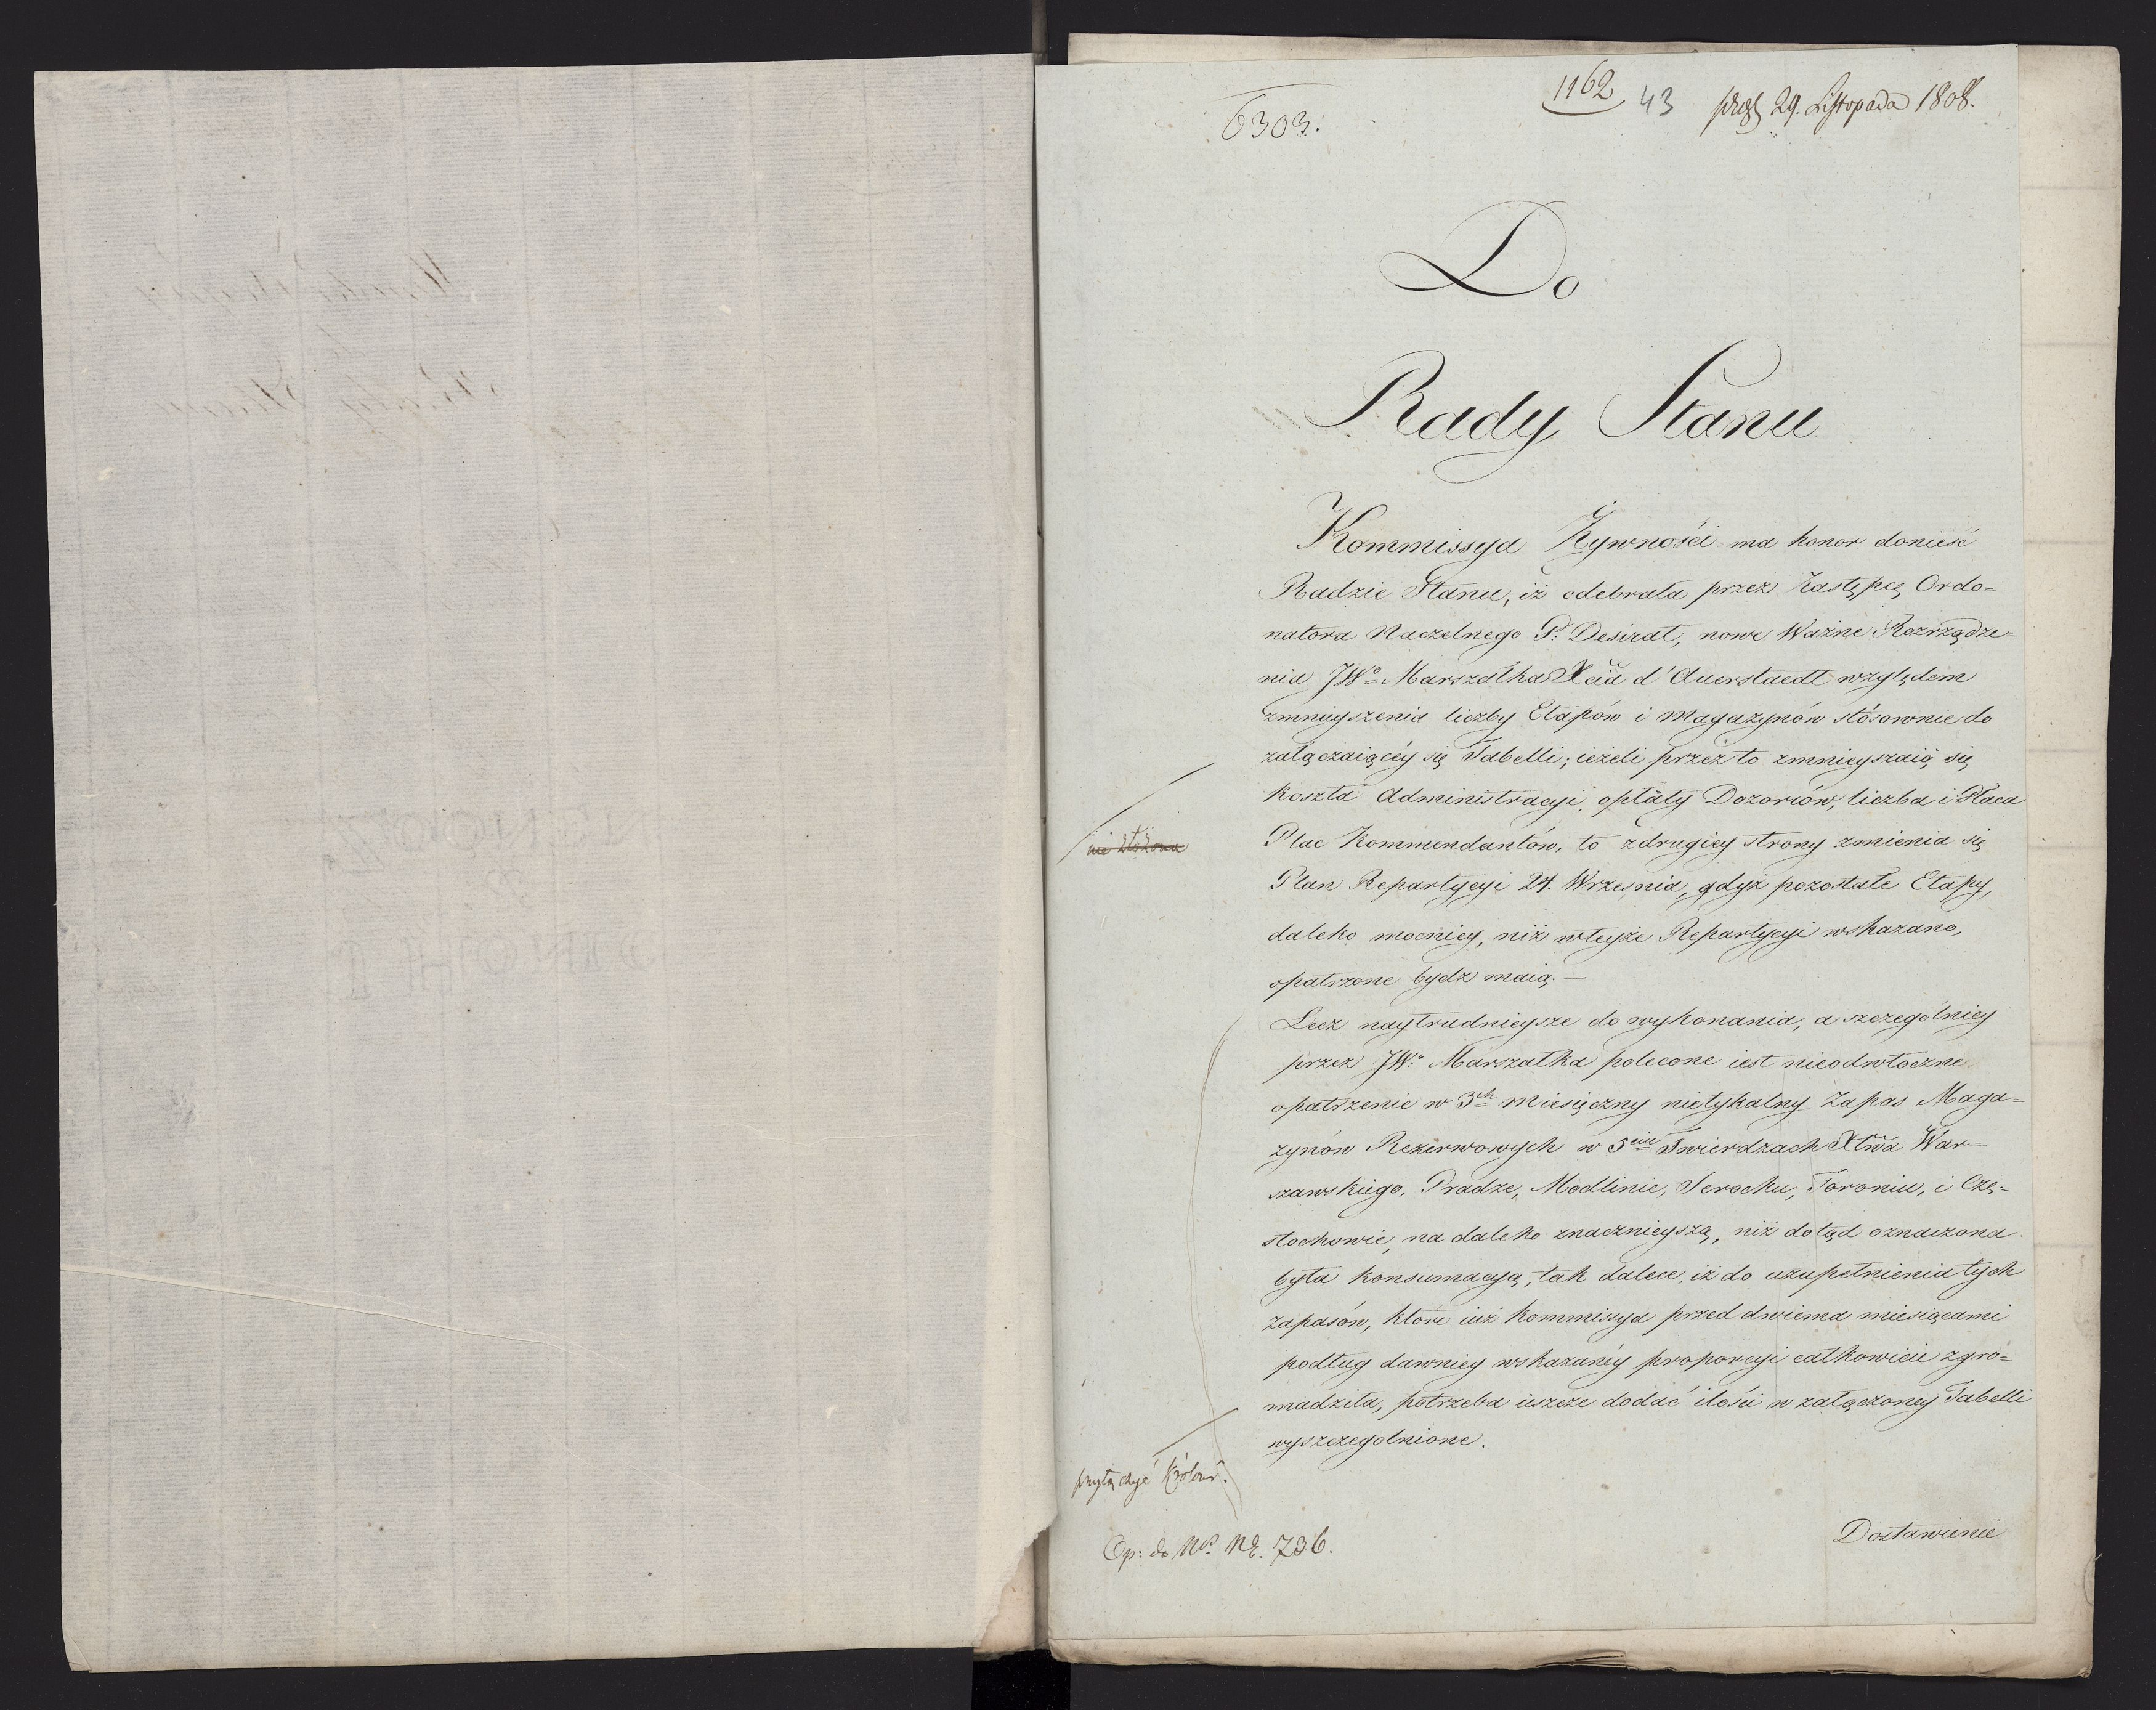 1162
43
praes 29. Listopada 1808.
6303.
Do
Rady Stanu
Kommissya Żywności ma honor donieść
Radzie Stanu, iż odebrała przez Zastępcę Ordo=
natora Naczelnego P. Desirat, nowe Ważne Rozrządze=
nia JWo Marszałka Xcia d'Auerstaedt względem
zmnieyszenia liczby Etapów i Magazynów stósownie do
załączaiącéy się Tabelli; ieżeli przez to zmnieyszaią się
koszta Administracyi, opłaty Dozorców, liczba i Płaca
Plac Kommendantów, to z drugiey strony zmienia się
nie złożona
Plan Repartycyi 24. Września, gdyż pozostałe Etapy,
daleko mocniey, niż w teyże Repartycyi wskazano,
opatrzone bydz maią.—
Lecz naytrudnieysze do wykonania, a szczególniey
przez JWo Marszałka polecone iest nieodwłoczne
opatrzenie w 3ch miesięczny nietykalny Zapas Maga=
zynów Rezerwowych w 5ciu Twierdzach Xtwa War=
szawskiego, Pradze, Modlinie, Serocku, Toroniu, i Czę=
stochowie, na daleko znacznieyszą, niż dotąd oznaczona
była konsumacyą, tak dalece, iż do uzupełnienia tych
zapasów, które iuż Kommissya przed dwiema miesiącami
podług dawniey wskazanéy proporcyi całkowicie zgro=
madziła, potrzeba ieszcze dodać ilości w załączoney Tabelli
wyszczegolnione.
Op: do No. 736.
Dostawienie